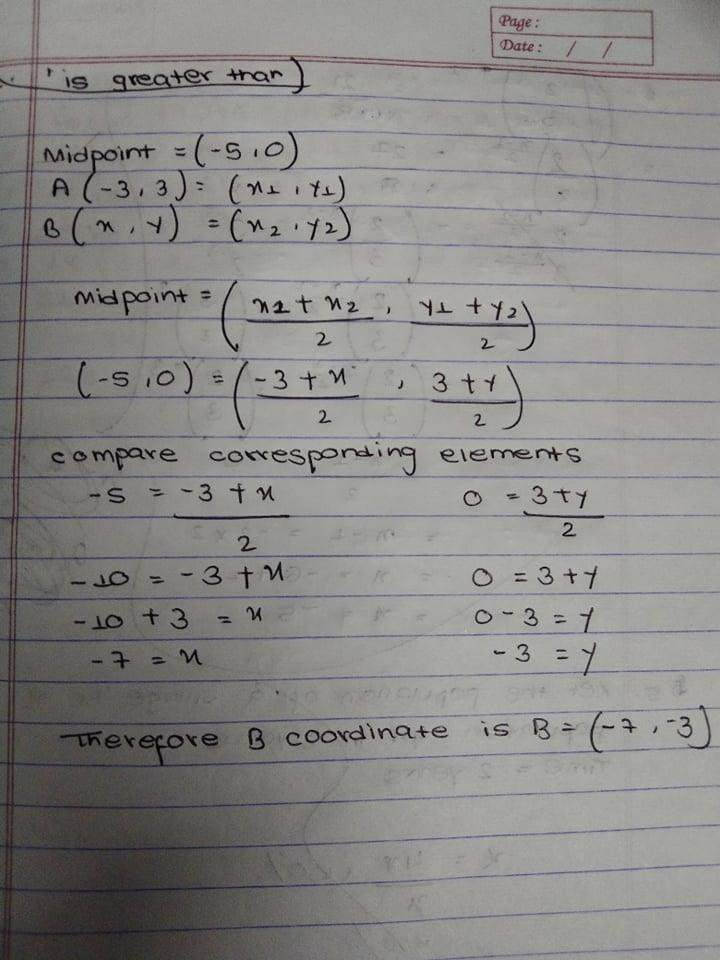 Page:
Date: / /
' is greater than)
Midpoint = (-5,0)
A (-3,3) = (x1, y1)
B (x, y) = (x2, y2)
midpoint = (x1 + x2 / 2, y1 + y2 / 2)
(-5,0) = (-3 + x / 2, 3 + y / 2)
compare corresponding elements
-5 = -3 + x / 2 0 = 3+y / 2
-10 = -3 + x 0 = 3+y
-10 + 3 = x 0-3 = y
-7 = x -3 = y
Therefore B coordinate is B = (-7, -3)